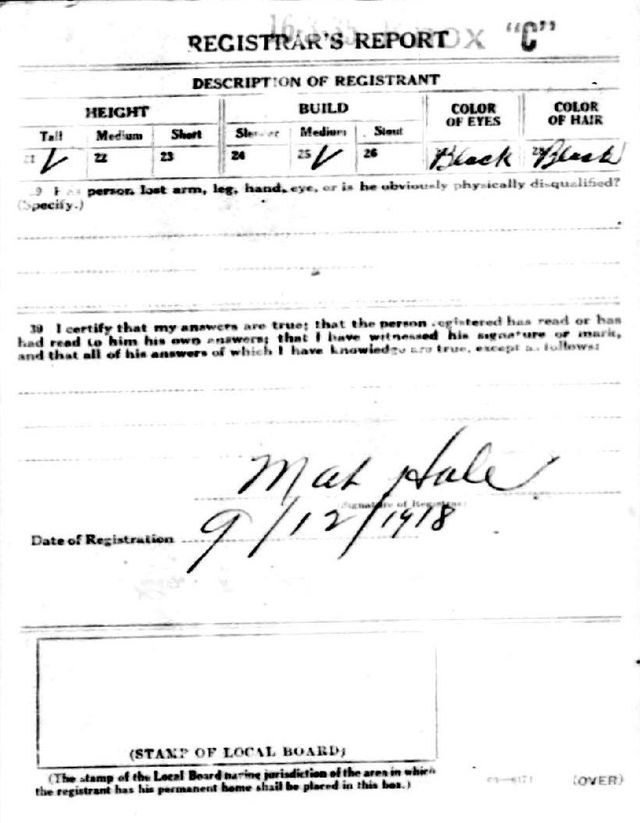 REGISTRAR'S REPORT "C"
DESCRIPTION OF REGISTRANT
HEIGHT BUILD COLOR OF EYES COLOR OF HAIR
Tall Medium Short Slender Medium Stout
21 ✓ 22 23 24 25 ✓ 26 Black 28 Black
29 Has person lost arm, leg, hand, eye, or is he obviously physically disqualified?
(Specify.)
30 I certify that my answers are true; that the person registered has read or has
had read to him his own answers; that I have witnessed his signature or mark,
and that all of his answers of which I have knowledge are true, except as follows:
Hale
(Signature of Registrar)
Date of Registration 9/12/1918
(STAMP OF LOCAL BOARD)
(The stamp of the Local Board having jurisdiction of the area in which
the registrant has his permanent home shall be placed in this box.)
(OVER)